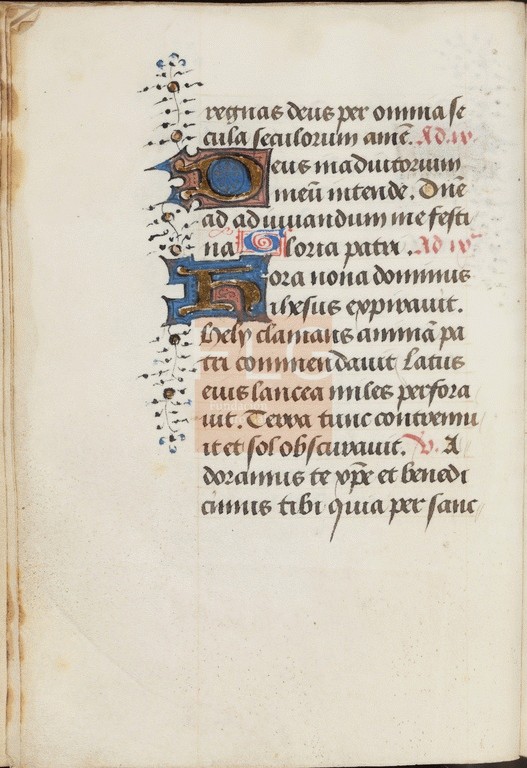 regnas deus per omnia se
cula seculorum amē. Ad
Deus in adiutorium
meū intende. Dñe
ad adiuvandum me festi
na Gloria patri. Ad
Hora nona dominus
ihesus expiravit.
Hely clamans animā pa
tri commendavit Latus
eius lancea miles perfora
vit. Terra tunc contremu
it et sol obscuravit. V. A
doramus te xp̄e et benedi
cimus tibi quia per sanc